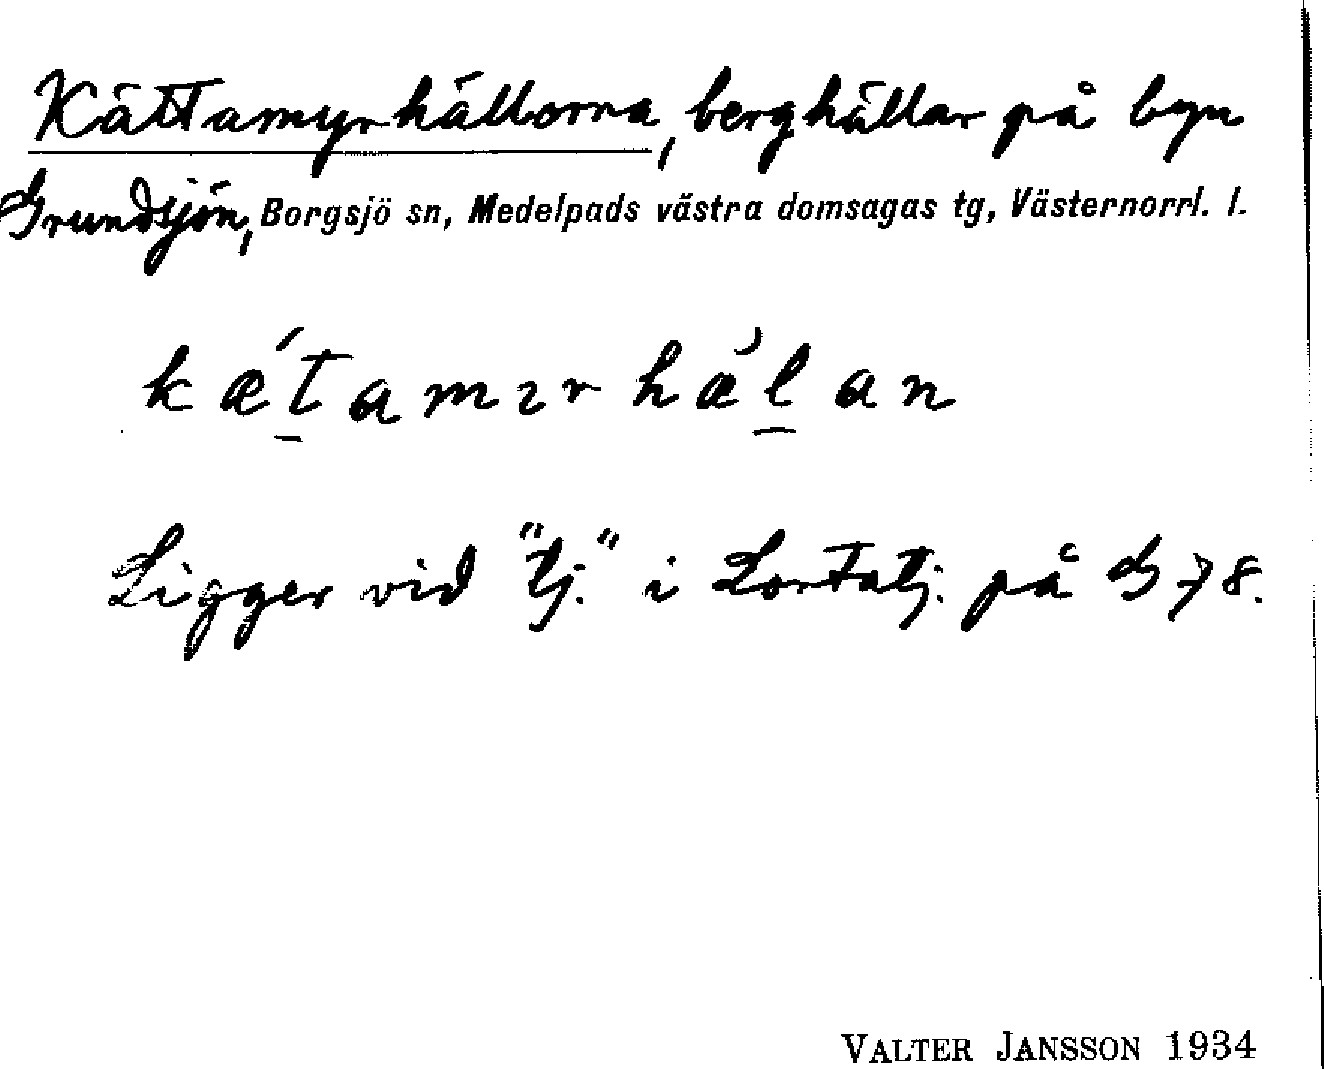 Kättamyrhällorna, berghällar på byn
Grundsjön, Borgsjö sn, Medelpads västra domsagas tg, Västernorrl. l.
kæ´t̲amɿrhæ̀l̲an
Ligger vid "tj." i Lortatj. på G 78.
VALTER JANSSON 1934